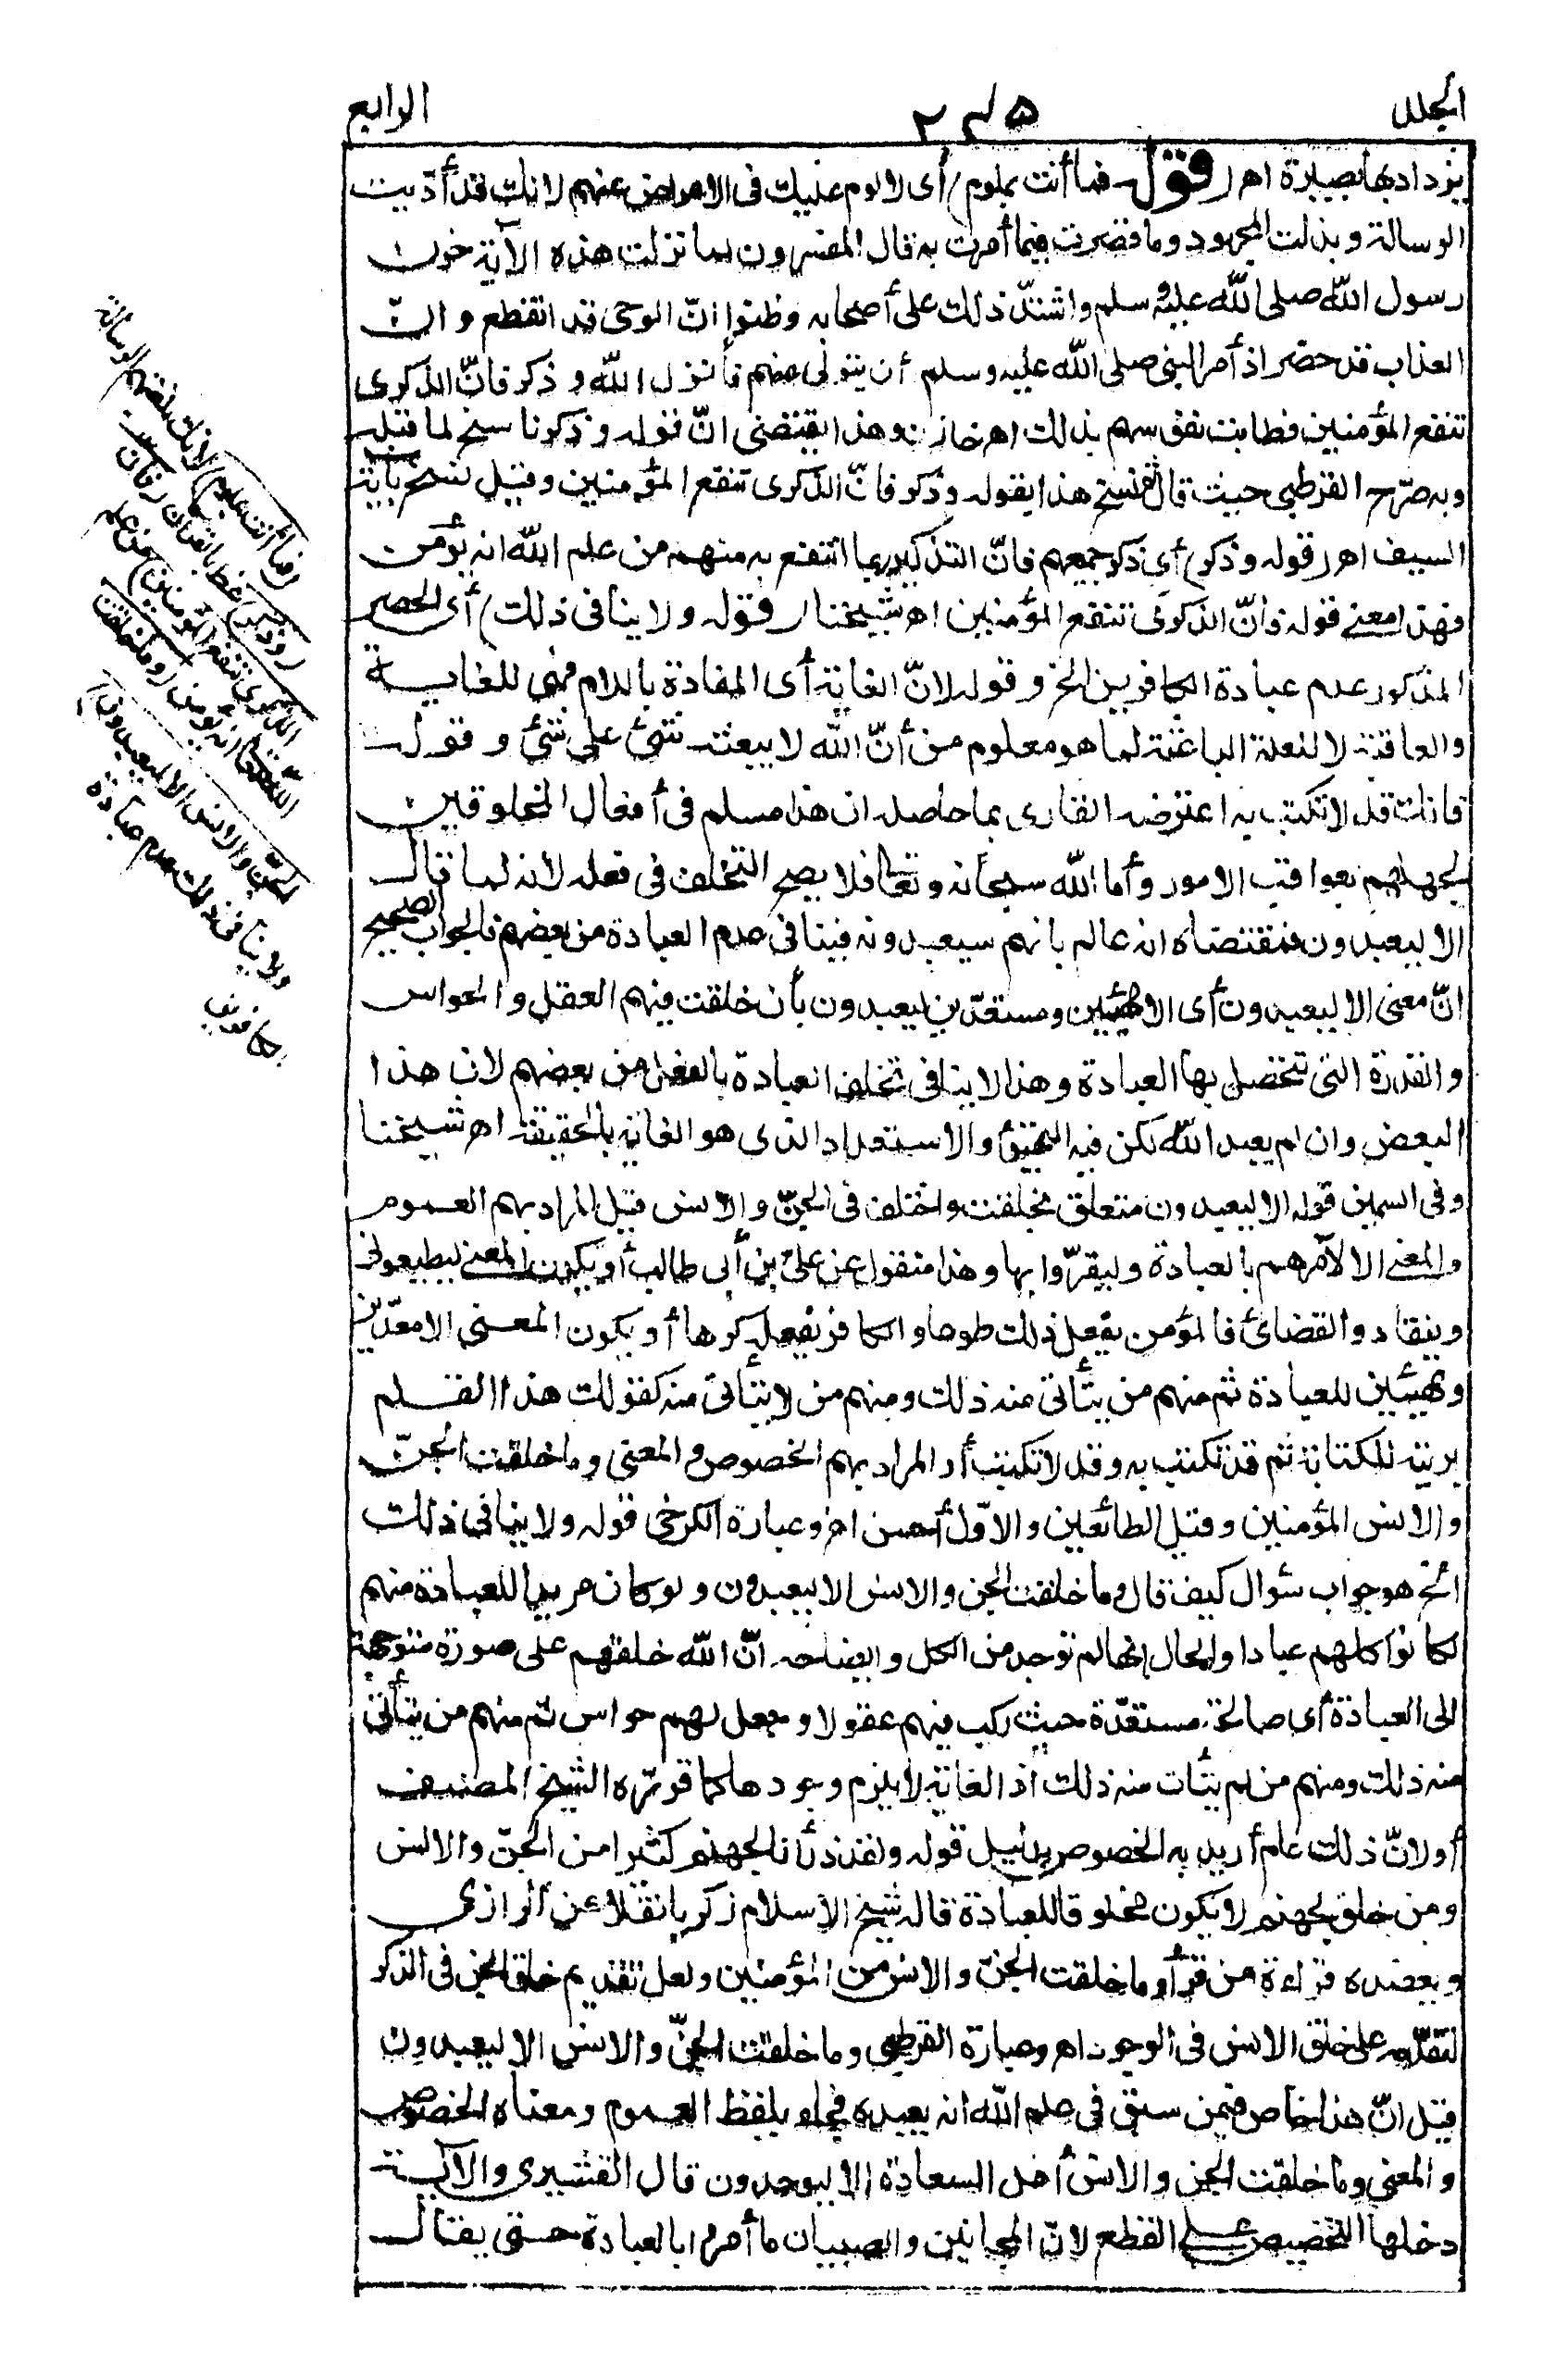 المجلد ٢٣٥ الرابع
يزداد بها بصيرة اهـ (قوله فما أنت بملوم) أى لا لوم عليك فى الاعراض عنهم لانك قد أدّيت
الرسالة وبذلت المجهود وما قصرت فيما أمرت به قال المفسرون لما نزلت هذه الآية حزن
رسول الله صلى الله عليه وسلم واشتدّ ذلك على أصحابه وظنوا انّ الوحى قد انقطع وانّ
العذاب قد حضر اذ أمر النبى صلى الله عليه وسلم أن يتولى عنهم فأنزل الله وذكر فانّ الذكرى
تنفع المؤمنين فطابت نفوسهم بذلك اهـ خازن وهذا يقتضى انّ قوله وذكر ناسخ لما قبله
وبه صرّح القرطبى حيث قال فنسخ هذا بقوله وذكر فانّ الذكرى تنفع المؤمنين وقيل نسخ بآية
السيف اهـ (قوله وذكر) أى ذكر جميعهم فانّ التذكير ربما انتفع به منهم من علم الله انه يؤمن
فهذا معنى قوله فانّ الذكرى تنفع المؤمنين اهـ شيخنا (قوله ولا ينافى ذلك) أى الحصر
المذكور عدم عبادة الكافرين الخ وقوله لانّ الغاية أى المفادة باللام فهى للغاية
والعاقبة لا للعلة الباعثة لما هو معلوم من أنّ الله لا يبعثه شئ على شئ وقوله
فانك قد لا تكتب به اعترضه القارى بما حاصله ان هذا مسلم فى أفعال المخلوقين
لجهلهم بعواقب الامور وأما الله سبحانه وتعالى فلا يصح التخلف فى فعله لأنه لما قال
الا ليعبدون فمقتضاه انه عالم بانهم سيعبدونه فينافى عدم العبادة من بعضهم فالجواب الصحيح
انّ معنى الا ليعبدون أى الا مهيئين ومستعدّين ليعبدون بأن خلقت فيهم العقل والحواس
والقدرة التى تتحصل بها العبادة وهذا لا ينافى تخلف العبادة بالفعل من بعضهم لان هذا
البعض وان لم يعبد الله لكن فيه التهيؤ والاستعداد الذى هو الغاية بالحقيقة اهـ شيخنا
وفى السمين قوله الا ليعبدون متعلق بخلقت واختلف فى الجنّ والانس قيل المراد بهم العموم
والمعنى الا لآمرهم بالعبادة وليقرّوا بها وهذا منقول عن علىّ بن أبى طالب أو يكون المعنى ليطيعونى
وينقادوا لقضائى فالمؤمن يفعل ذلك طوعا والكافر يفعله كرها أو يكون المعنى الا معدّين
ومهيئين للعبادة ثم منهم من يتأتى منه ذلك ومنهم من لا يتأتى منه كقولك هذا القلم
بريته للكتابة ثم قد تكتب به وقد لا تكتب أو المراد بهم الخصوص والمعنى وما خلقت الجنّ
والانس المؤمنين وقيل الطائعين والاوّل أحسن اهـ وعبارة الكرخى قوله ولا ينافى ذلك
الخ هو جواب سؤال كيف قال وما خلقت الجن والانس الا ليعبدون ولو كان مريدا للعبادة منهم
لكانوا كلهم عبادا والحال انها لم توجد من الكل وايضاحه انّ الله خلقهم على صورة متوجهة
الى العبادة أى صالحة مستعدّة حيث ركب فيهم عقولا وجعل لهم حواس ثم منهم من يتأتى
منه ذلك ومنهم من لم يتأت منه ذلك اذ الغاية لا يلزم وجودها كما قرّره الشيخ المصنف
أو لانّ ذلك عام أريد به الخصوص بدليل قوله ولقد ذرأنا لجهنم كثيرا من الجنّ والانس
ومن خلق لجهنم لا يكون مخلوقا للعبادة قاله شيخ الاسلام زكريا نقلا عن الرازى
ويعضده قراءة من قرأ وما خلقت الجنّ والانس من المؤمنين ولعل تقديم خلق الجن فى الذكر
لتقدّمه على خلق الانس فى الوجود اهـ وعبارة القرطبى وما خلقت الجنّ والانس الا ليعبدون
قيل انّ هذا خاص فيمن سبق فى علم الله انه يعبده فجاء بلفظ العموم ومعناه الخصوص
والمعنى وما خلقت الجن والانس أهل السعادة الا ليوحدون قال القشيرى والآية
دخلها التخصيص على القطع لانّ المجانين والصبيان ما أمروا بالعبادة حتى يقال
(فما أنت بملوم) لانك بلغتهم الرسالة
(وذكر) عظ بالقرآن (فانّ
الذكرى تنفع المؤمنين) من علم
الله تعالى انه يؤمن (وما خلقت
الجنّ والانس الا ليعبدون)
ولا ينافى ذلك عدم عبادة
الكافرين